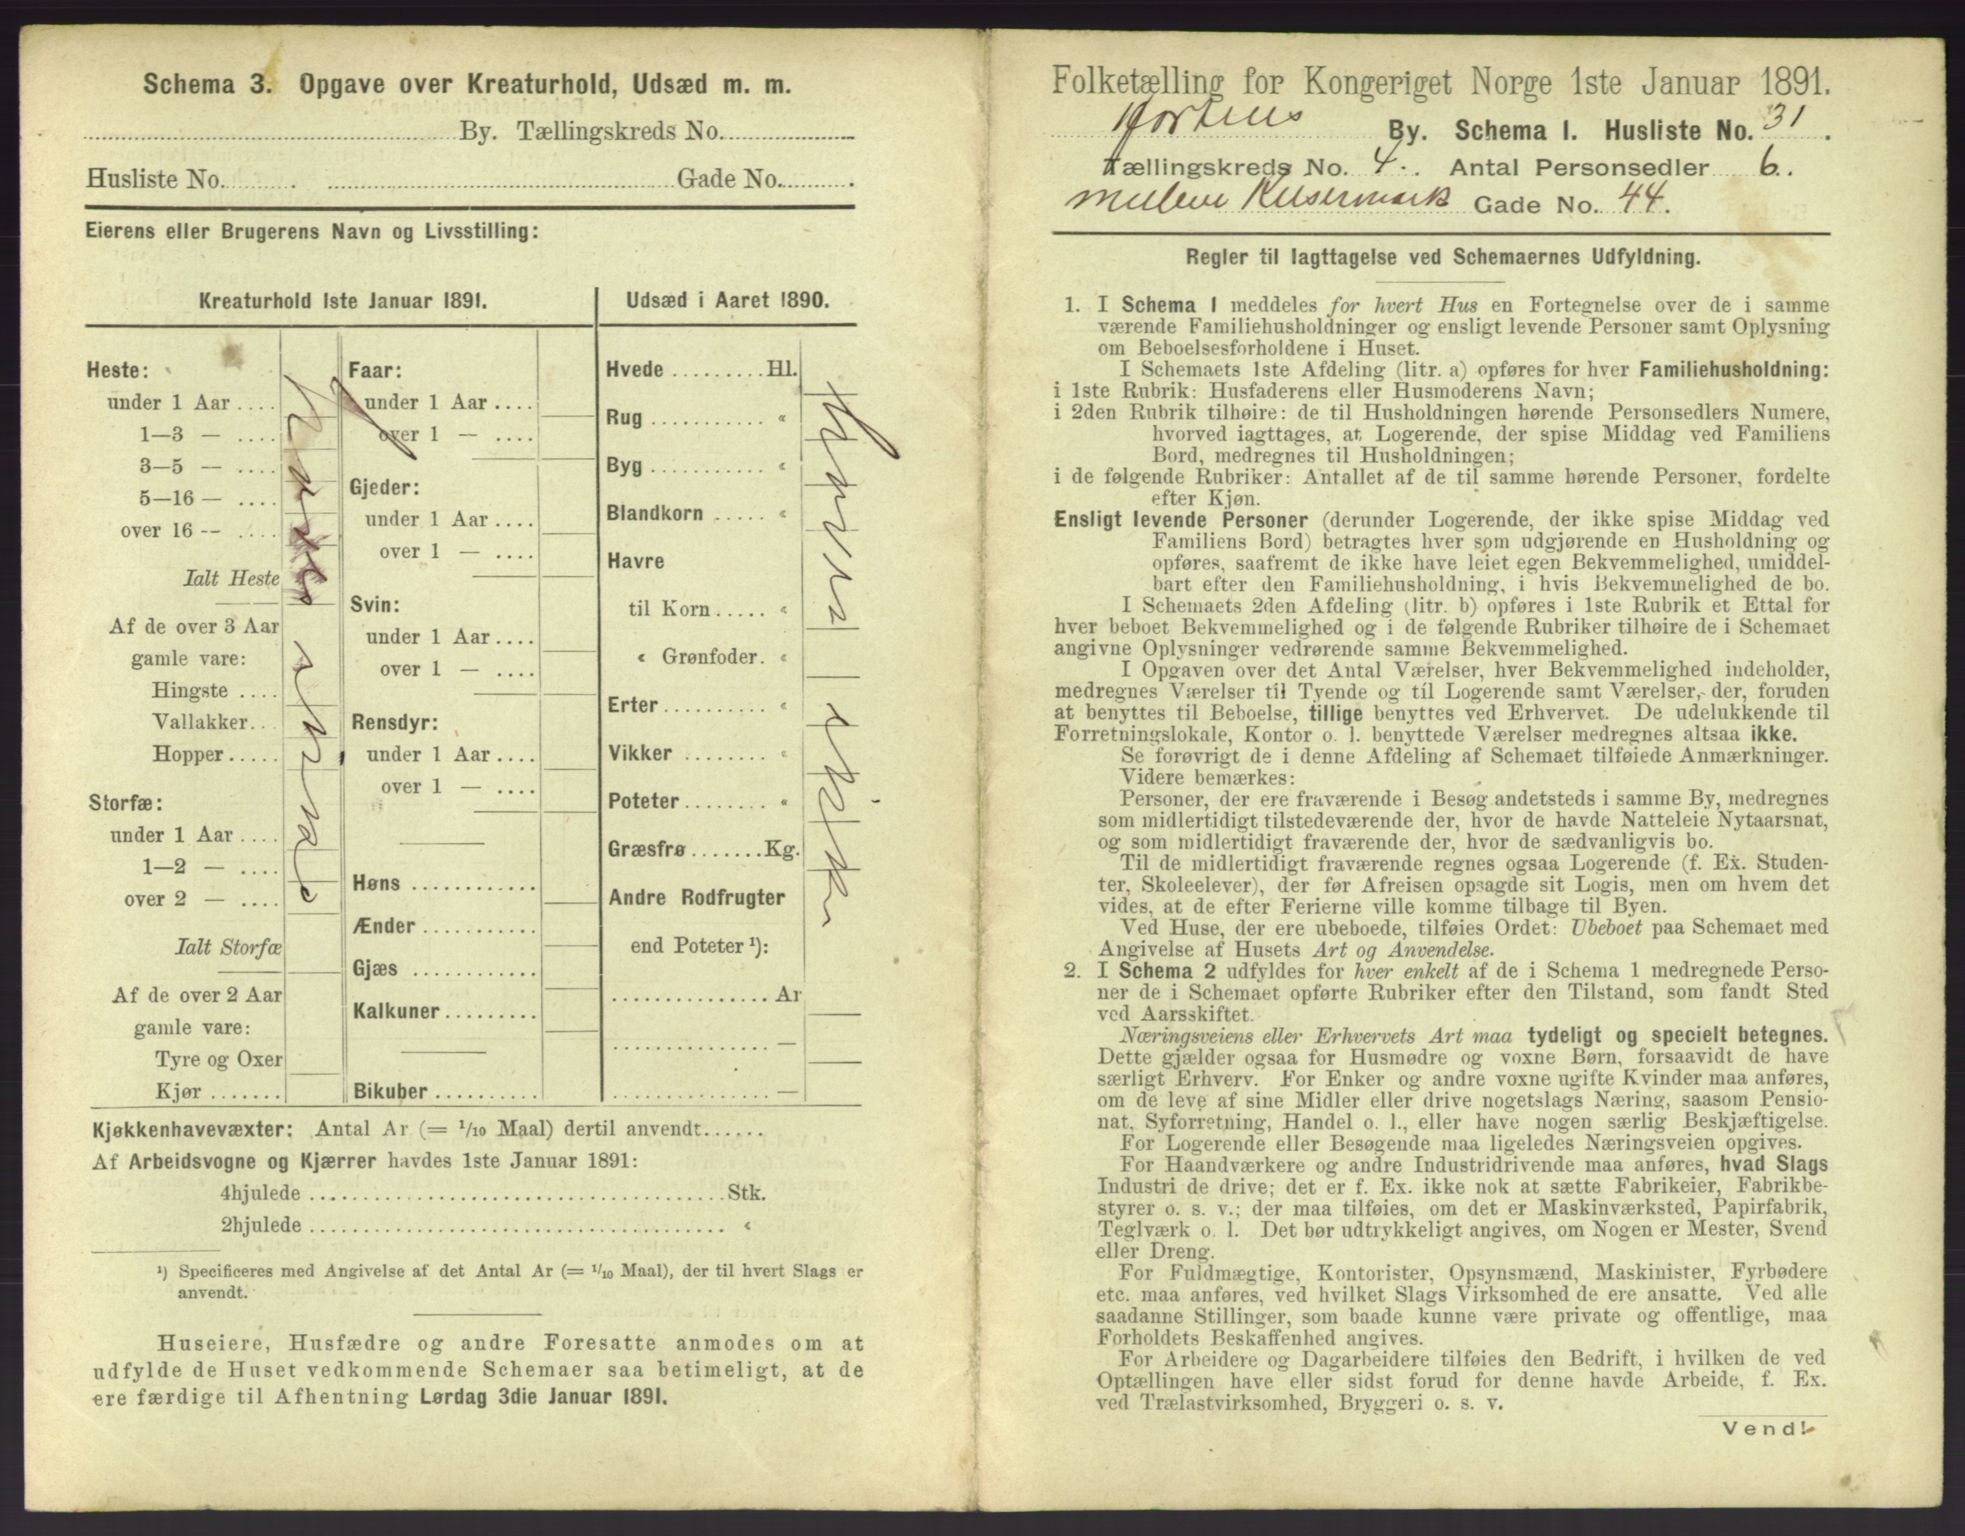 Schema 3. Opgave over Kreaturhold, Udsæd m. m.
By. Tællingskreds No.
Husliste No. Gade No.
Eierens eller Brugerens Navn og Livsstilling:
Kreaturhold 1ste Januar 1891.
Heste:
under 1 Aar
1—3 —
3—5 —
5—16 —
over 16 —
Ialt Heste
Af de over 3 Aar
gamle vare:
Hingste
Vallakker
Hopper
Storfæ:
under 1 Aar
1—2 —
over 2 —
Ialt Storfæ
Af de over 2 Aar
gamle vare:
Tyre og Oxer
Kjør
Faar:
under 1 Aar
over 1 —
Gjeder:
under 1 Aar
over 1 —
Svin:
under 1 Aar
over 1 —
Rensdyr:
under 1 Aar
over 1 —
Høns
Ænder
Gjæs
Kalkuner
Bikuber
Udsæd i Aaret 1890.
Hvede Hl.
Rug «
Byg «
Blandkorn «
Havre
til Korn «
« Grønfoder. «
Erter «
Vikker «
Poteter «
Græsfrø Kg.
Andre Rodfrugter
end Poteter ¹):
Ar
—
—
Kjøkkenhavevæxter: Antal Ar (= 1/10 Maal) dertil anvendt
Af Arbeidsvogne og Kjærrer havdes 1ste Januar 1891:
4hjulede Stk.
2hjulede «
¹) Specificeres med Angivelse af det Antal Ar (= 1/10 Maal), der til hvert Slags er
anvendt.
Huseiere, Husfædre og andre Foresatte anmodes om at
udfylde de Huset vedkommende Schemaer saa betimeligt, at de
ere færdige til Afhentning Lørdag 3die Januar 1891.
Folketælling for Kongeriget Norge 1ste Januar 1891.
Hortens By. Schema 1. Husliste No. 31.
Tællingskreds No. 4. Antal Personsedler 6.
Gade No. 44.
Regler til Iagttagelse ved Schemaernes Udfyldning.
1. I Schema 1 meddeles for hvert Hus en Fortegnelse over de i samme
værende Familiehusholdninger og ensligt levende Personer samt Oplysning
om Beboelsesforholdene i Huset.
I Schemaets 1ste Afdeling (litr. a) opføres for hver Familiehusholdning:
i 1ste Rubrik: Husfaderens eller Husmoderens Navn;
i 2den Rubrik tilhøire: de til Husholdningen hørende Personsedlers Numere,
hvorved iagttages, at Logerende, der spise Middag ved Familiens
Bord, medregnes til Husholdningen;
i de følgende Rubriker: Antallet af de til samme hørende Personer, fordelte
efter Kjøn.
Ensligt levende Personer (derunder Logerende, der ikke spise Middag ved
Familiens Bord) betragtes hver som udgjørende en Husholdning og
opføres, saafremt de ikke have leiet egen Bekvemmelighed, umiddel-
bart efter den Familiehusholdning, i hvis Bekvemmelighed de bo.
I Schemaets 2den Afdeling (litr. b) opføres i 1ste Rubrik et Ettal for
hver beboet Bekvemmelighed og i de følgende Rubriker tilhøire de i Schemaet
angivne Oplysninger vedrørende samme Bekvemmelighed.
I Opgaven over det Antal Værelser, hver Bekvemmelighed indeholder,
medregnes Værelser til Tyende og til Logerende samt Værelser, der, foruden
at benyttes til Beboelse, tillige benyttes ved Erhvervet. De udelukkende til
Forretningslokale, Kontor o. l. benyttede Værelser medregnes altsaa ikke.
Se forøvrigt de i denne Afdeling af Schemaet tilføiede Anmærkninger.
Videre bemærkes:
Personer, der ere fraværende i Besøg andetsteds i samme By, medregnes
som midlertidigt tilstedeværende der, hvor de havde Natteleie Nytaarsnat,
og som midlertidigt fraværende der, hvor de sædvanligvis bo.
Til de midlertidigt fraværende regnes ogsaa Logerende (f. Ex. Studen-
ter, Skoleelever), der før Afreisen opsagde sit Logis, men om hvem det
vides, at de efter Ferierne ville komme tilbage til Byen.
Ved Huse, der ere ubeboede, tilføies Ordet: Ubeboet paa Schemaet med
Angivelse af Husets Art og Anvendelse.
2. I Schema 2 udfyldes for hver enkelt af de i Schema 1 medregnede Perso-
ner de i Schemaet opførte Rubriker efter den Tilstand, som fandt Sted
ved Aarsskiftet.
Næringsveiens eller Erhvervets Art maa tydeligt og specielt betegnes.
Dette gjælder ogsaa for Husmødre og voxne Børn, forsaavidt de have
særligt Erhverv. For Enker og andre voxne ugifte Kvinder maa anføres,
om de leve af sine Midler eller drive nogetslags Næring, saasom Pensio-
nat, Syforretning, Handel o. l., eller have nogen særlig Beskjæftigelse.
For Logerende eller Besøgende maa ligeledes Næringsveien opgives.
For Haandværkere og andre Industridrivende maa anføres, hvad Slags
Industri de drive; det er f. Ex. ikke nok at sætte Fabrikeier, Fabrikbe-
styrer o. s. v.; der maa tilføies, om det er Maskinværksted, Papirfabrik,
Teglværk o. l. Det bør udtrykkeligt angives, om Nogen er Mester, Svend
eller Dreng.
For Fuldmægtige, Kontorister, Opsynsmænd, Maskinister, Fyrbødere
etc. maa anføres, ved hvilket Slags Virksomhed de ere ansatte. Ved alle
saadanne Stillinger, som baade kunne være private og offentlige, maa
Forholdets Beskaffenhed angives.
For Arbeidere og Dagarbeidere tilføies den Bedrift, i hvilken de ved
Optællingen have eller sidst forud for denne havde Arbeide, f. Ex.
ved Trælastvirksomhed, Bryggeri o. s. v.
Vend!